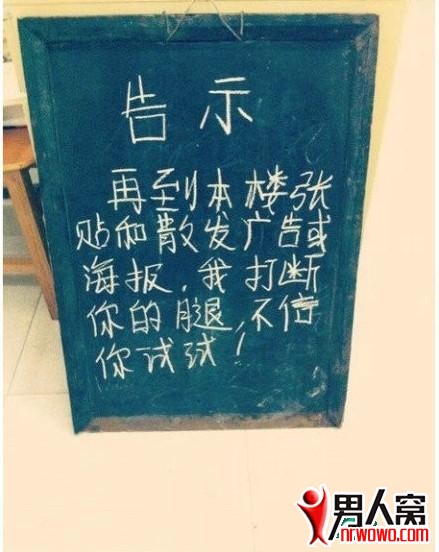 告示
再到本楼张
贴和散发广告或
海报，我打断
你的腿，不信
你试试！
男人窝
nrwowo.com